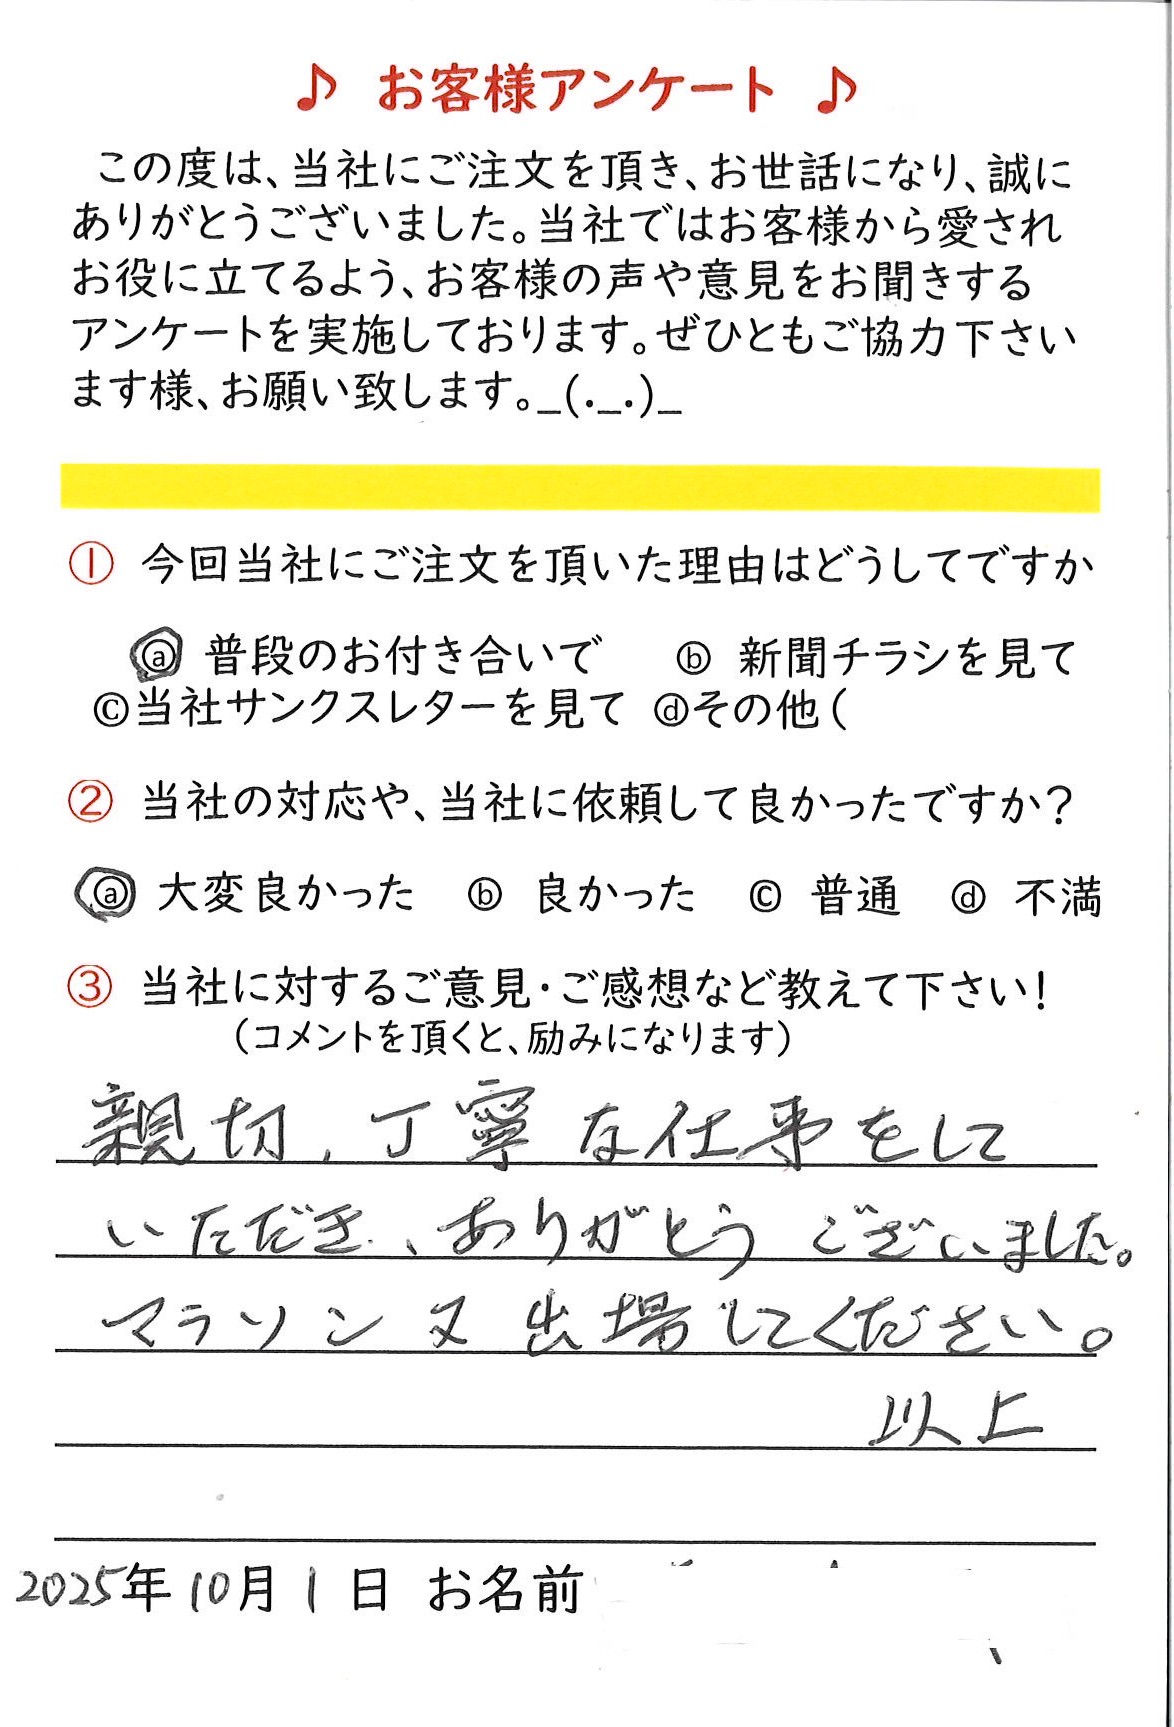 ♪ お客様アンケート ♪
この度は、当社にご注文を頂き、お世話になり、誠に
ありがとうございました。当社ではお客様から愛され
お役に立てるよう、お客様の声や意見をお聞きする
アンケートを実施しております。ぜひともご協力下さい
ます様、お願い致します。_(._.)_
① 今回当社にご注文を頂いた理由はどうしてですか
ⓐ 普段のお付き合いで ⓑ 新聞チラシを見て
ⓒ当社サンクスレターを見て ⓓその他(
② 当社の対応や、当社に依頼して良かったですか?
ⓐ 大変良かった ⓑ 良かった ⓒ 普通 ⓓ 不満
③ 当社に対するご意見・ご感想など教えて下さい!
(コメントを頂くと、励みになります)
親切、丁寧な仕事をして
いただき、ありがとうございました。
マラソン又出場してください。
以上
2025年10月1日 お名前